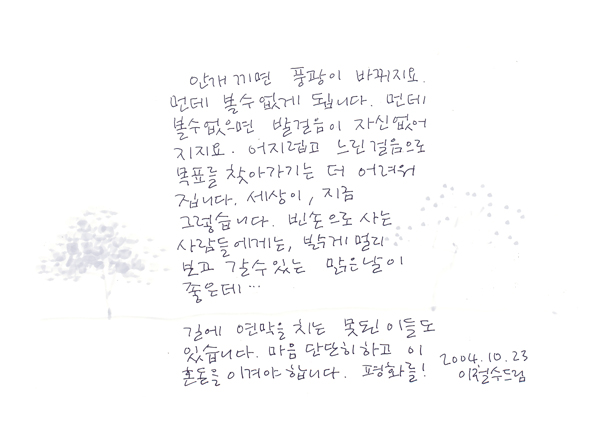 안개 끼면 풍광이 바뀌지요.
먼데 볼수없게 됩니다. 먼데
볼수없으면 발걸음이 자신없어
지지요. 어지럽고 느린 걸음으로
목표를 찾아가기는 더 어려워
집니다. 세상이, 지금
그렇습니다. 빈손으로 사는
사람들에게는, 밝게 멀리
보고 갈수있는 맑은날이
좋은데…
길에 연막을 치는 못된 이들도
있습니다. 마음 단단히하고 이
혼돈을 이겨야 합니다. 평화를!
2004.10.23
이철수드림